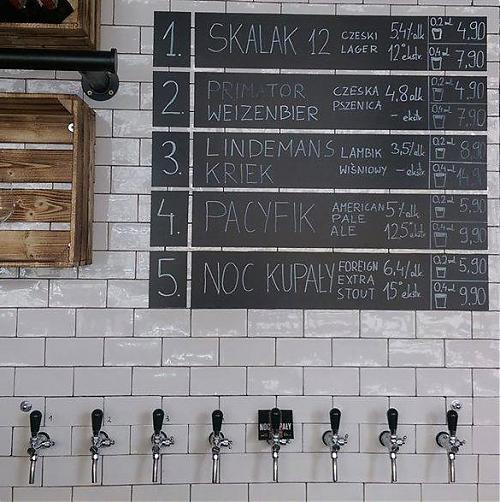 1. SKALAK 12 CZESKI LAGER 5,4% alk 12° ekstr. 0,2 L 4,90 0,4 L 7,90
2. PRIMATOR WEIZENBIER CZESKA PSZENICA 4,8 alk - ekstr 0,2 L 4,90 0,4 L 7,90
3. LINDEMANS KRIEK LAMBIK WIŚNIOWY 3,5% alk - ekstr. 0,2 L 8,90 0,4 L 14,9
4. PACYFIK AMERICAN PALE ALE 5% alk 12,5° ekstr. 0,2 L 5,90 0,4 L 9,90
5. NOC KUPAŁY FOREIGN EXTRA STOUT 6,4% alk 15° ekstr. 0,2 L 5,90 0,4 L 9,90
1 2 3
NOC KUPAŁY